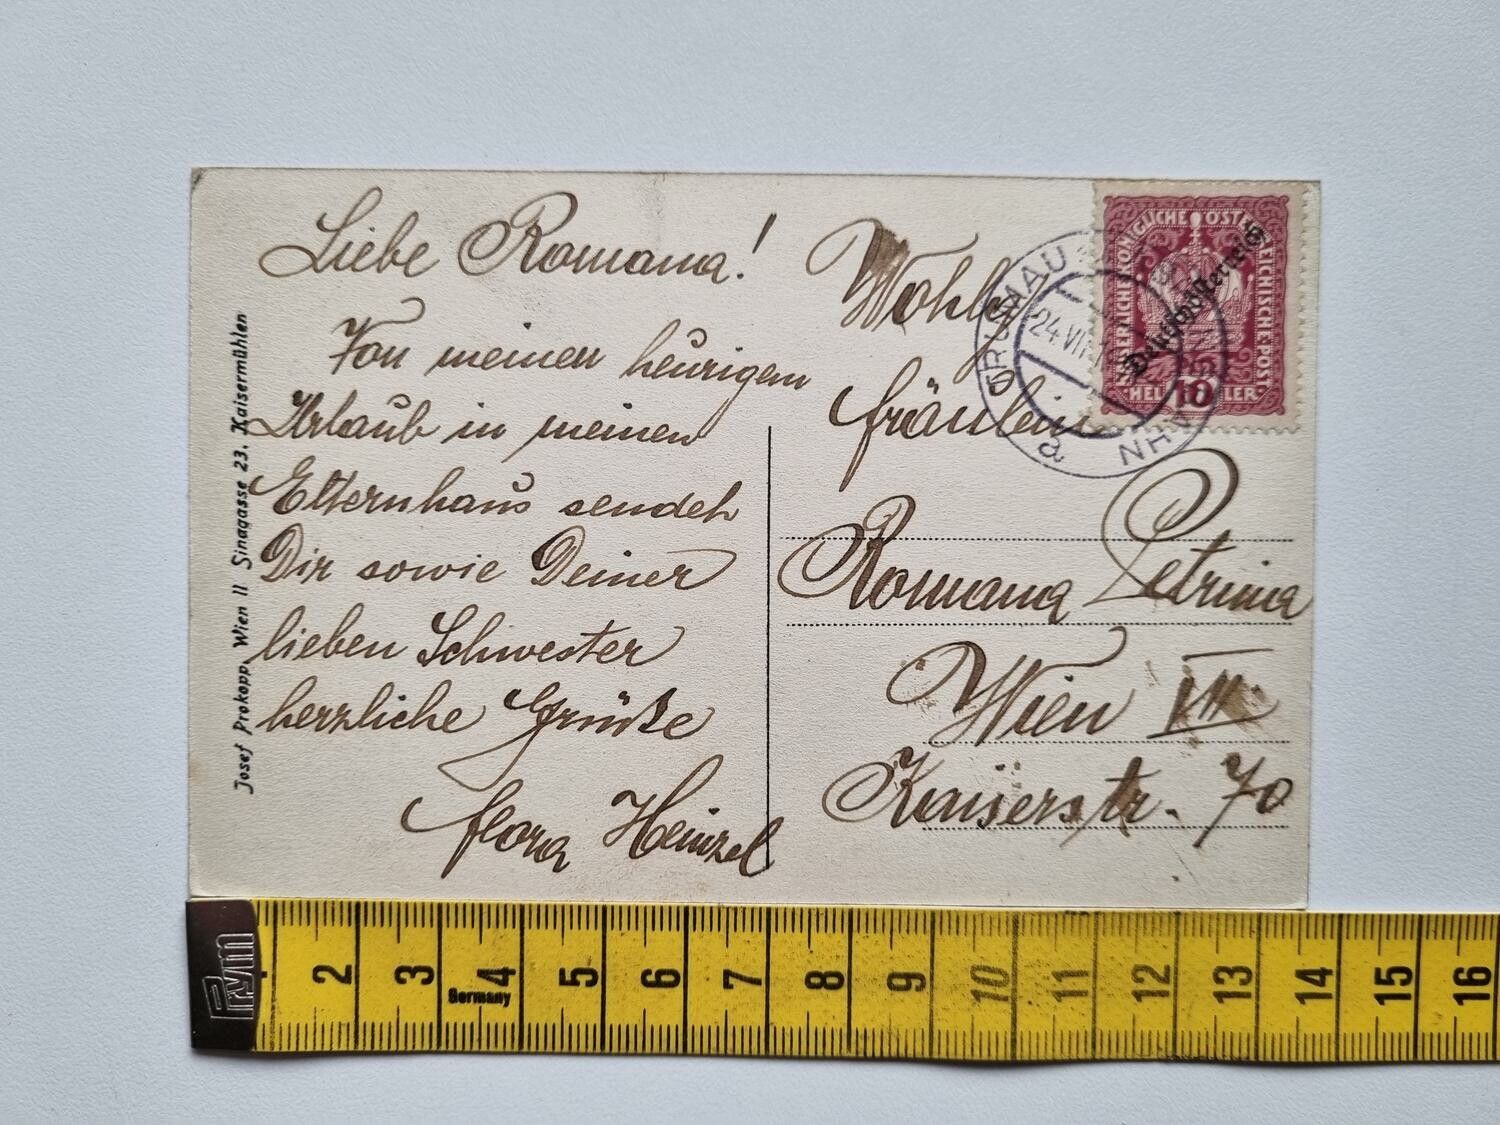 Liebe Romana!
Von meinen heurigen
Urlaub in meinen
Elternhaus sendet
Dir sowie Deiner
lieben Schwester
herzliche Grüße
flora Heinzel
Josef Prokopp, Wien II Sinagasse 23. Kaisermühlen
Wohlg
fräulein
Romana Petrina
Wien VII.
Kaiserstr. 70
KAISERLICHE KÖNIGLICHE ÖSTERREICHISCHE POST
Deutschösterreich
HELLER
10
GRUSMAU
24.VII
a
Prym
2 3 4 5 6 7 8 9 10 11 12 13 14 15 16
Germany